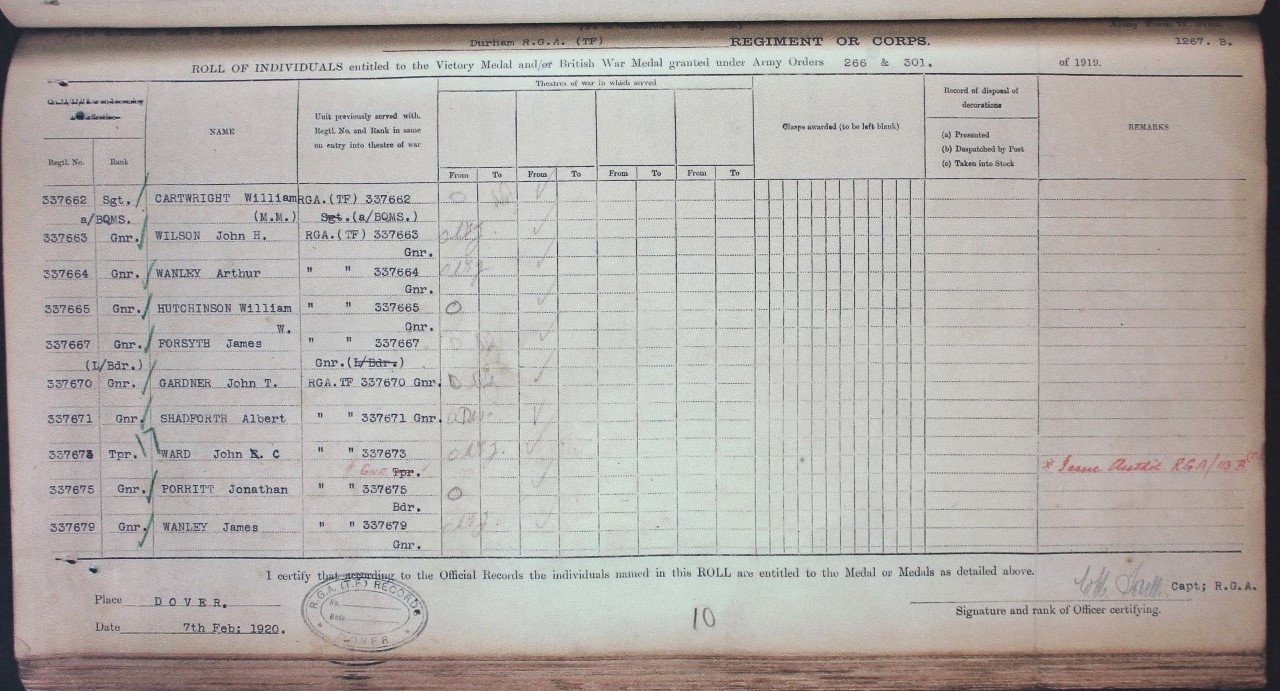 Durham R.G.A. (TF) REGIMENT OR CORPS. 1267. B.
ROLL OF INDIVIDUALS entitled to the Victory Medal and/or British War Medal granted under Army Orders 266 & 301. of 1919.
Theatres of war in which served
NAME
Unit previously served with.
Regtl. No. and Rank in same
on entry into theatre of war
Clasps awarded (to be left blank)
Record of disposal of
decorations
(a) Presented
(b) Despatched by Post
(c) Taken into Stock
REMARKS
Regtl. No. Rank
From To From To From To From To
337662 Sgt. CARTWRIGHT William RGA.(TF) 337662
a/BQMS. (M.M.) Sgt.(a/BQMS.)
337663 Gnr. WILSON John H. RGA.(TF) 337663
Gnr.
337664 Gnr. WANLEY Arthur " " 337664
Gnr.
337665 Gnr. HUTCHINSON William " " 337665
W. Gnr.
337667 Gnr. FORSYTH James " " 337667
(L/Bdr.) Gnr.(L/Bdr.)
337670 Gnr. GARDNER John T. RGA.TF 337670 Gnr.
337671 Gnr. SHADFORTH Albert " " 337671 Gnr.
337673 Tpr. WARD John C " " 337673
Gnr Tpr.
* Issue Auth'd RGA/
337675 Gnr. PORRITT Jonathan " " 337675
Bdr.
337679 Gnr. WANLEY James " " 337679
Gnr.
I certify that according to the Official Records the individuals named in this ROLL are entitled to the Medal or Medals as detailed above.
Capt; R.G.A.
Place DOVER.
Signature and rank of Officer certifying.
Date 7th Feb: 1920.
R.G.A. (T.F) RECORDS
DOVER
10